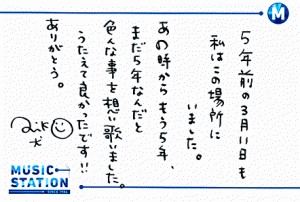 5年前の3月11日も
私はこの場所に
いました。
あの時からもう5年、
まだ5年なんだと
色んな事を想い歌いました。
うたえて良かったです!!
ありがとう。
M
MUSIC
STATION